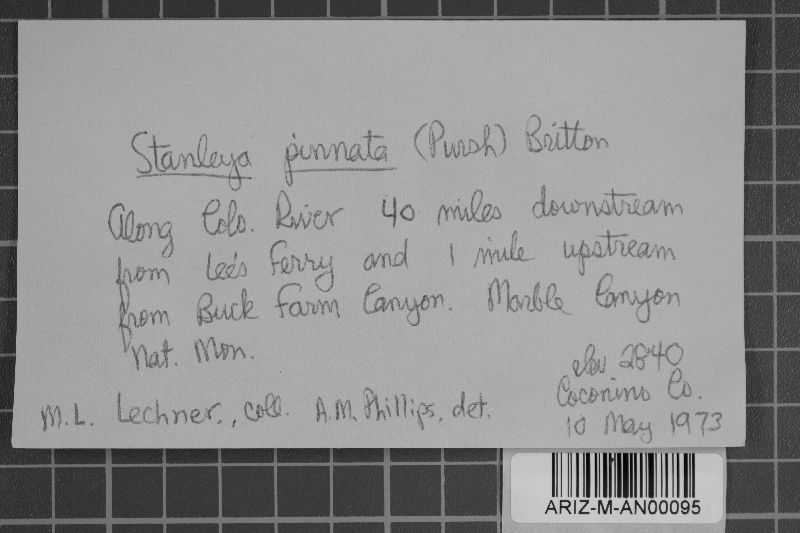 Stanleya pinnata (Pursh) Britton
Along Colo. River 40 miles downstream
from Lee's Ferry and 1 mile upstream
from Buck Farm Canyon. Marble Canyon
Nat. Mon.
elev 2840
Coconino Co.
M.L. Lechner., coll. A.M. Phillips, det.
10 May 1973
ARIZ-M-AN00095